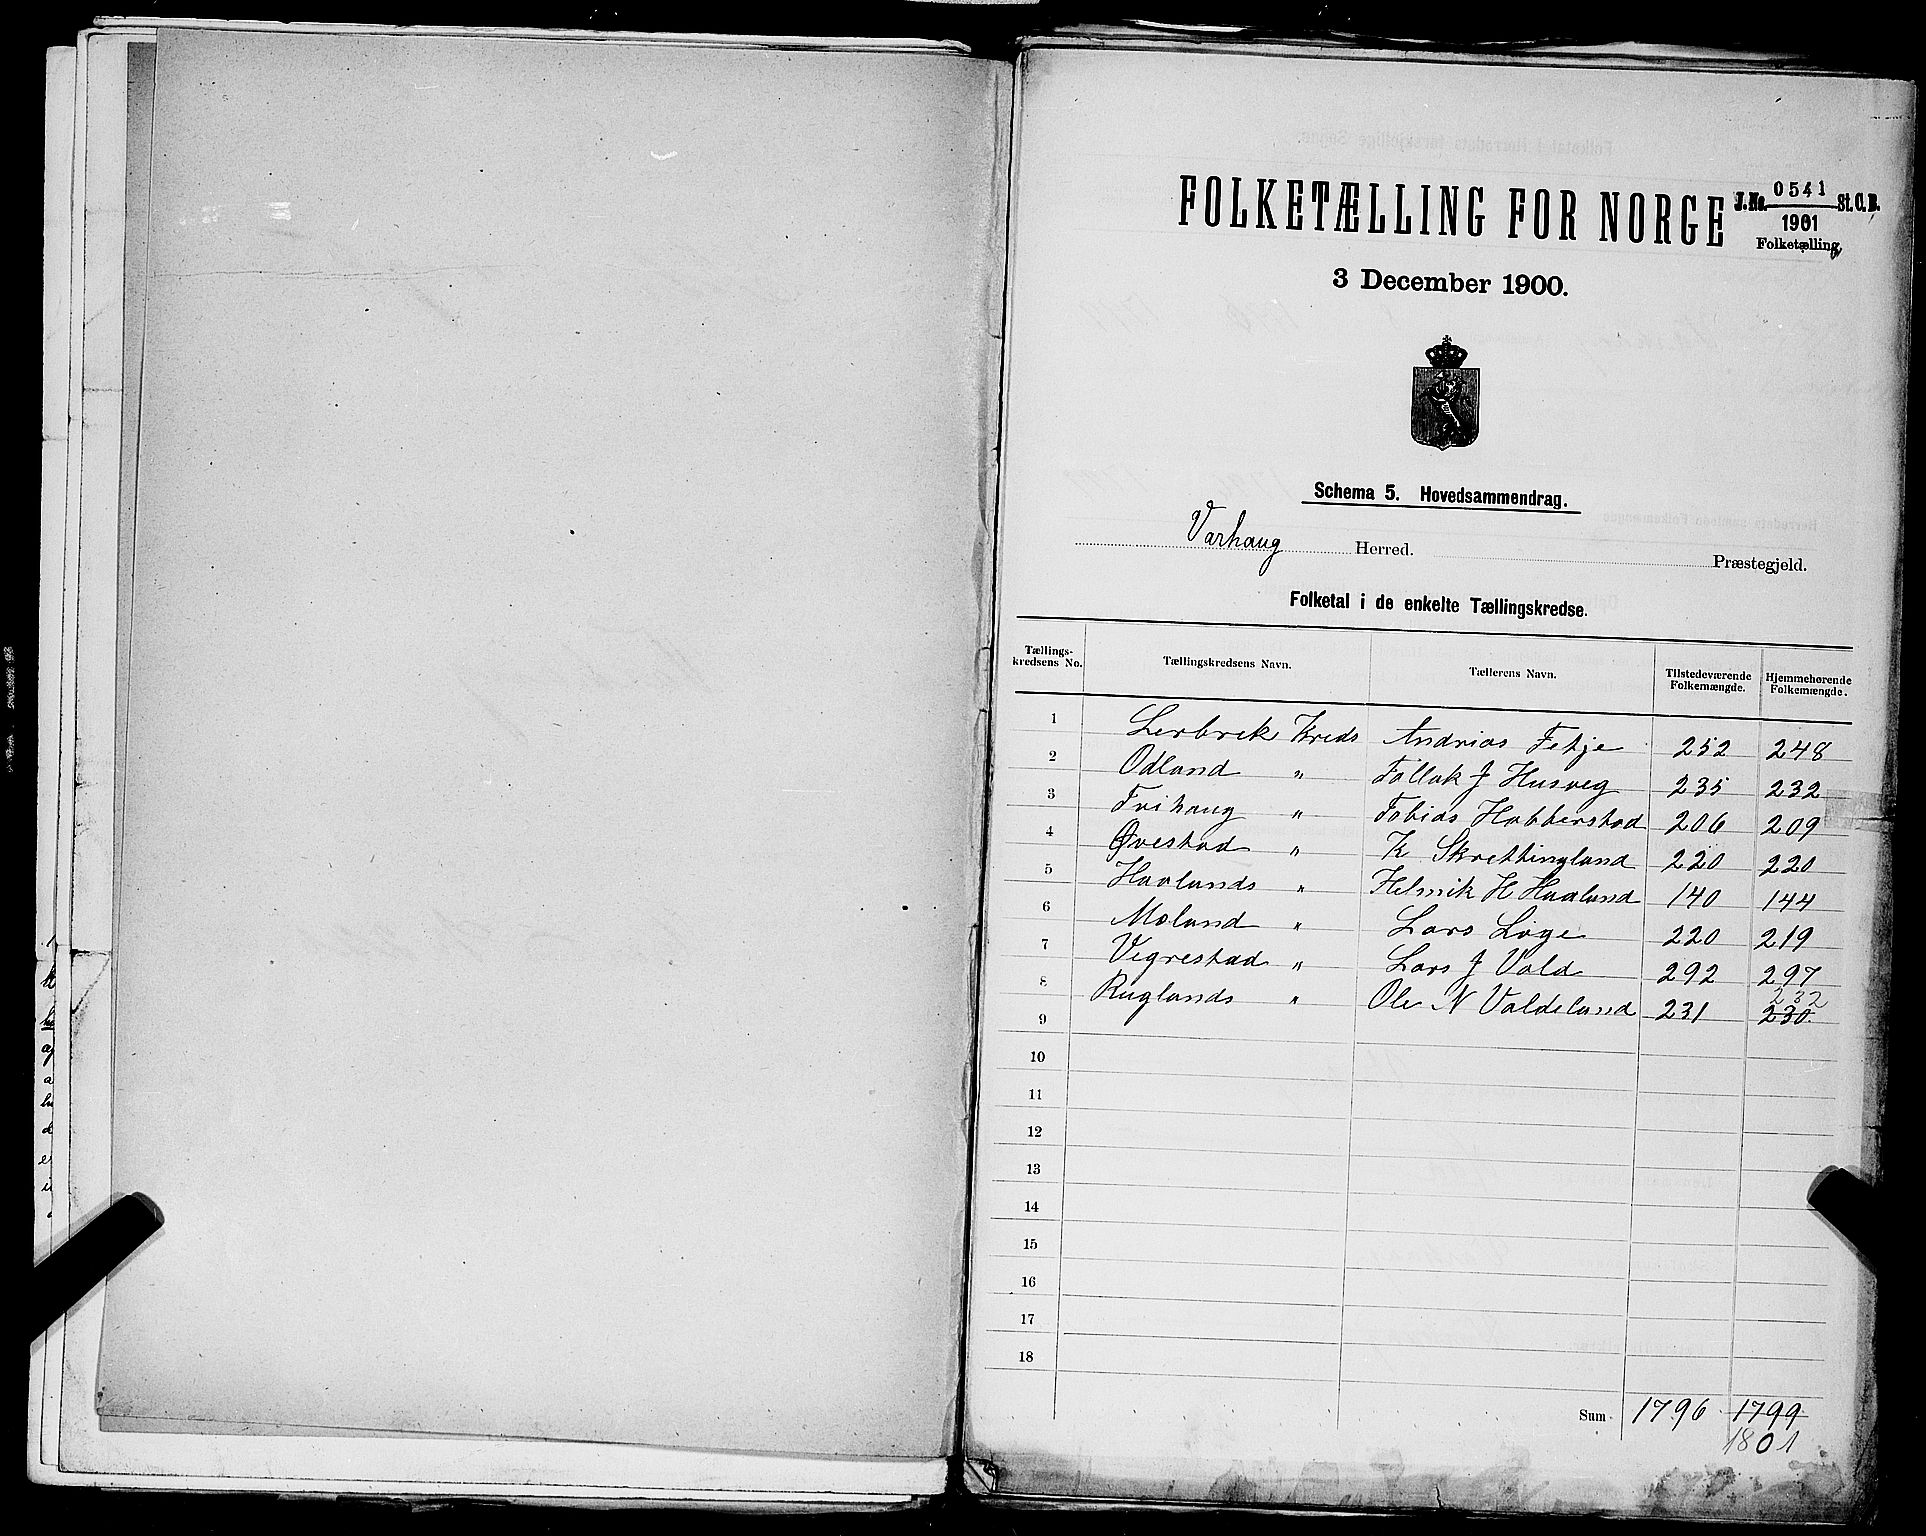 FOLKETÆLLING FOR NORGE
J.No. 0541 St.C.B.
1901
Folketælling
3 December 1900.
Schema 5. Hovedsammendrag.
Varhaug Herred. Præstegjeld.
Folketal i de enkelte Tællingskredse.
Tællings-kredsens No. Tællingskredsens Navn. Tællerens Navn. Tilstedeværende Folkemængde. Hjemmehørende Folkemængde.
1 Lerbrek Kreds Andrias Fetje 252 248
2 Odland " Tollak J Husveg 235 232
3 Tvihaug " Tobias Habberstad 206 209
4 Øvestad " K Skrettingland 220 220
5 Haalands " Helmik H Haaland 140 144
6 Moland " Lars Lige 220 219
7 Vigrestad " Lars J Vold 292 297
8 Ruglands " Ole N Valdeland 231 230.
232
9
10
11
12
13
14
15
16
17
18
Sum 1796 1799
1801